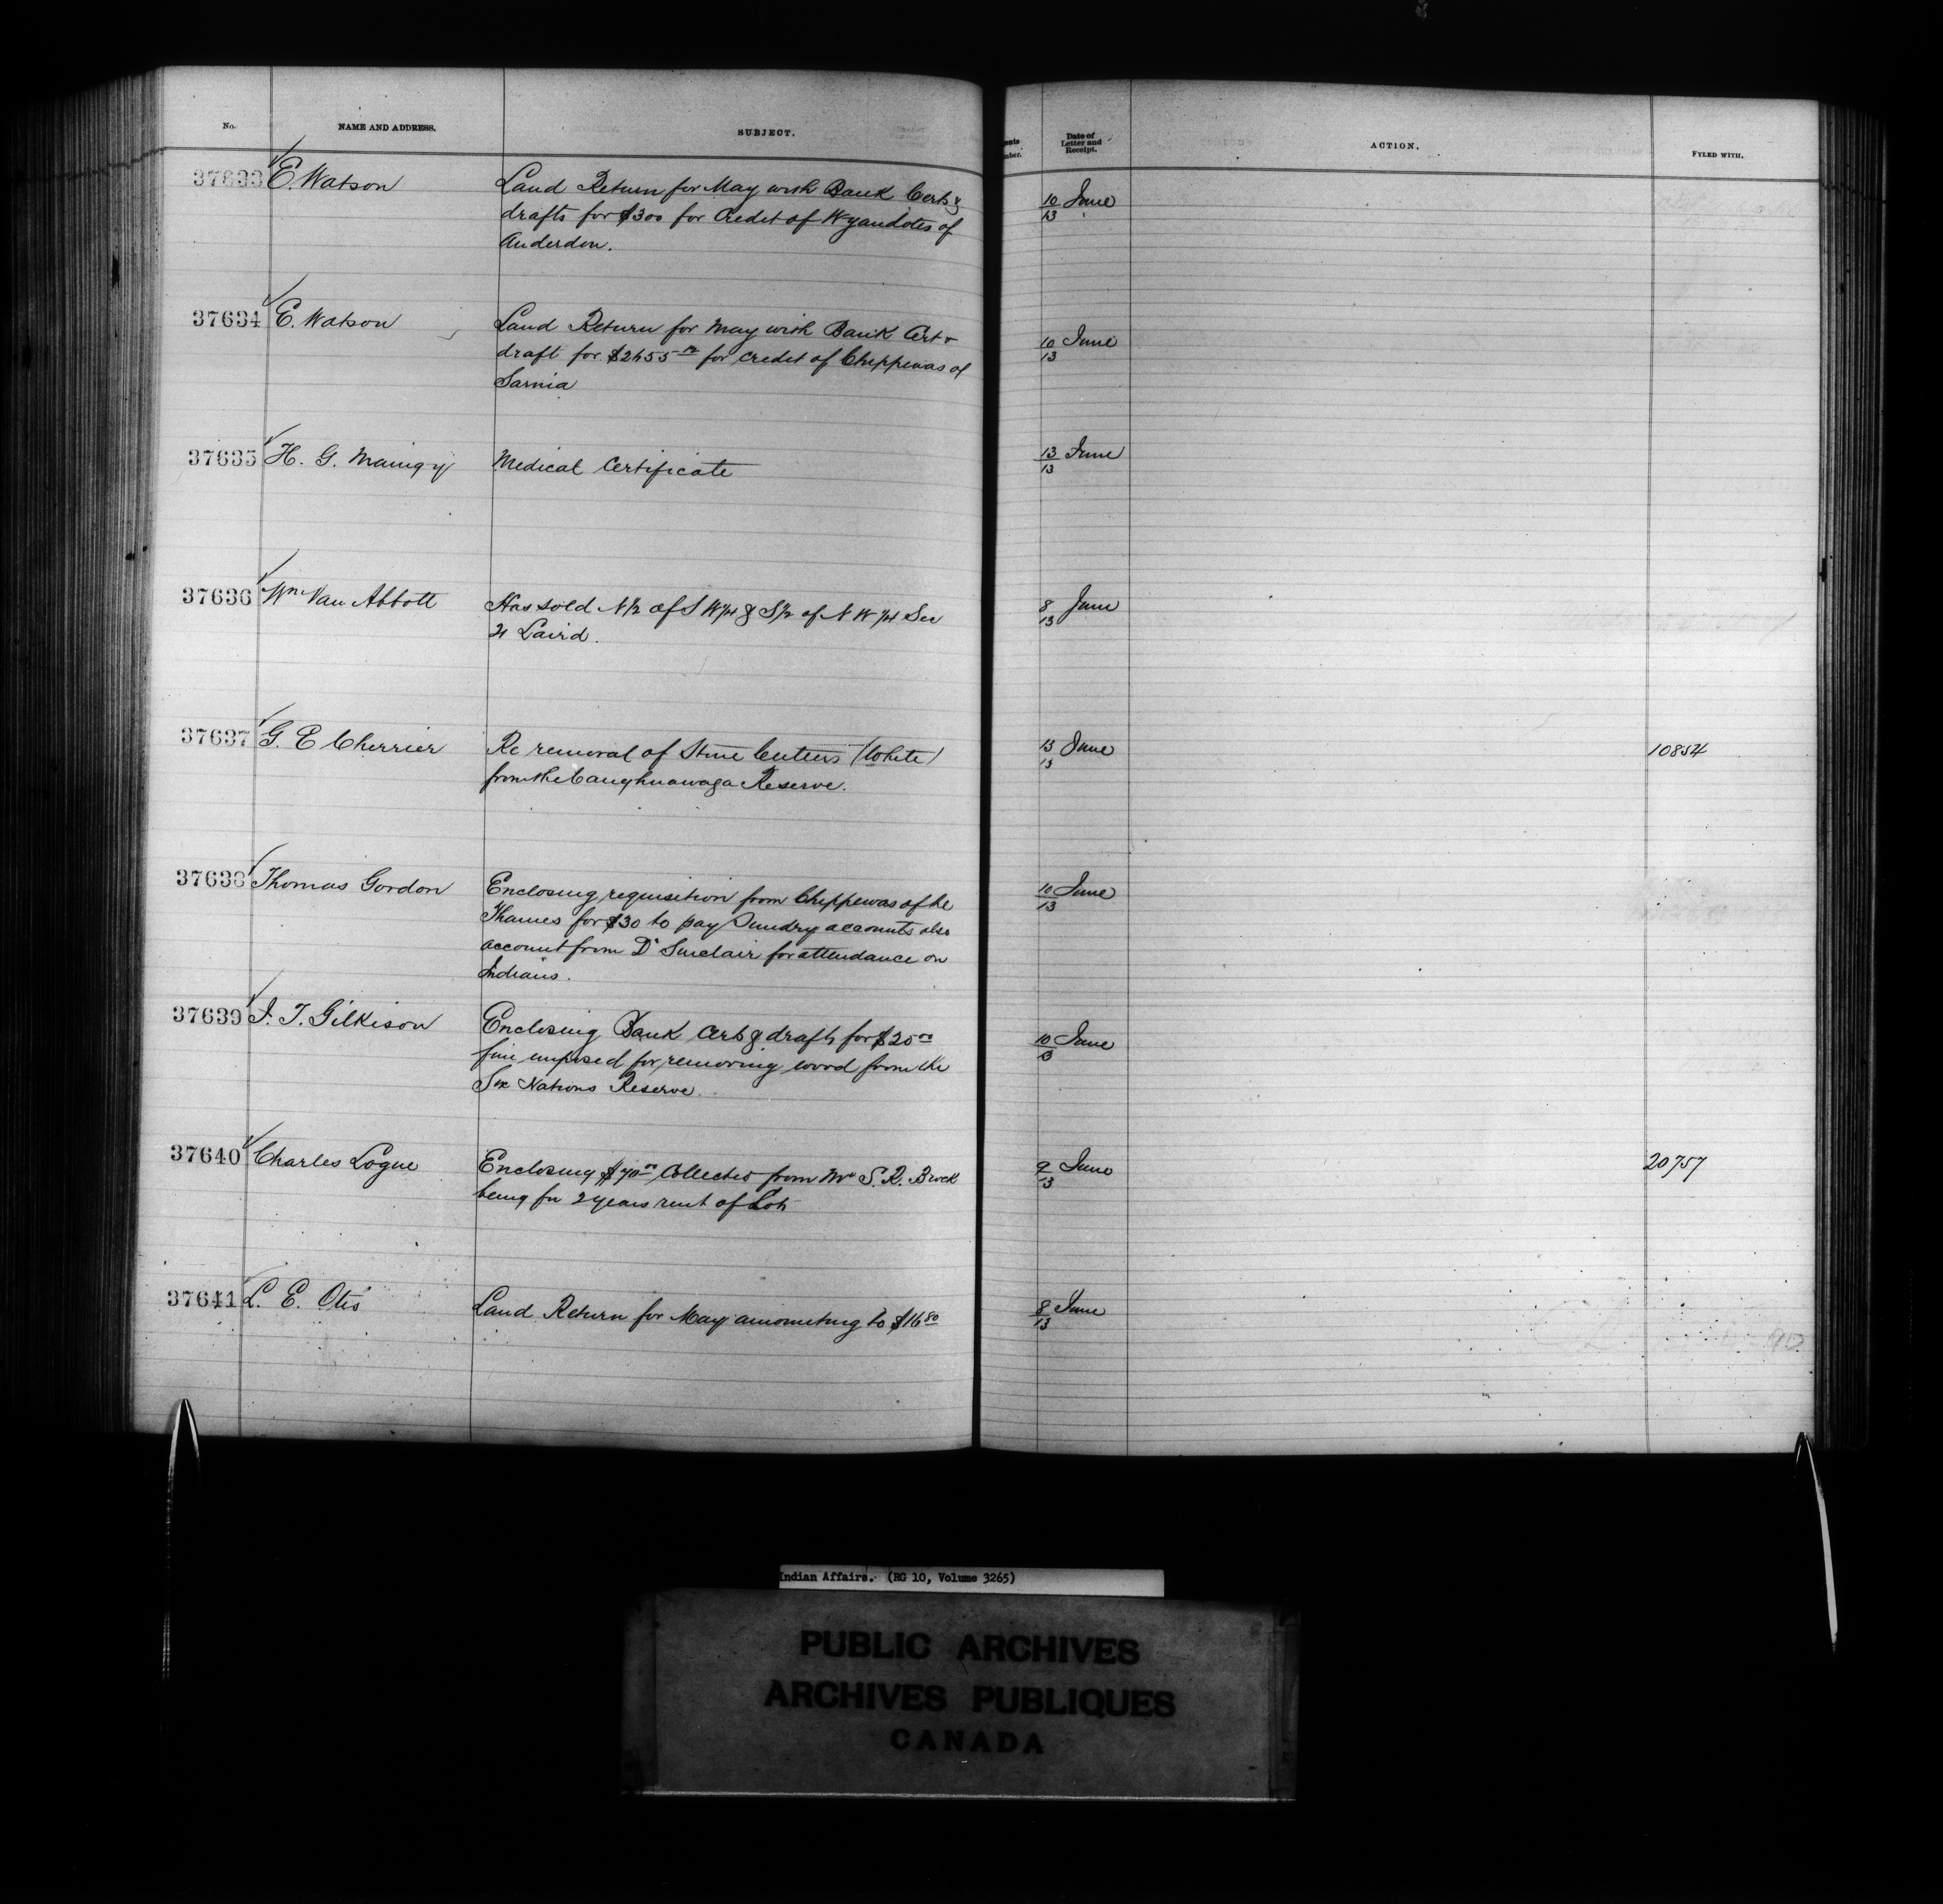 No.
NAME AND ADDRESS.
SUBJECT.
Date of
Letter and
Receipt.
ACTION.
FYLED WITH.
37633 E. Watson
Land Return for May with Bank Certs &
drafts for $300 for Credit of Wyandotes of
Anderdon.
10 June
13
37634 E. Watson
Land Return for May with Bank Cert &
draft for for credit of Chippewas of
Sarnia
10 June
13
37635 H. G.
Medical Certificate
13 June
13
37636 Wm Van Abbott
Has sold N 1/2 of S W 1/4 & S 1/2 of N W 1/4 Sec
Laird.
8 June
13
37637 G. E Cherrier
Re removal of Stone Cutters (White)
from the Caughnawaga Reserve.
13 June
13
10854
37638 Thomas Gordon
Enclosing requisition from Chippewas of the
Thames for $30 to pay Sundry accounts also
account from Dr Sinclair for attendance on
Indians.
10 June
13
37639 J. T. Gilkison
Enclosing Bank Certs & drafts for
fine imposed for removing wood from the
Six Nations Reserve.
10 June
13
37640 Charles Logue
Enclosing Collected from Mr S. R. Brock
being for 2 years rent of
9 June
13
20757
37641 L. E. Otis
Land Return for May amounting to $16 80
8 June
13
Indian Affairs. (RG 10, Volume 3265)
PUBLIC ARCHIVES
ARCHIVES PUBLIQUES
CANADA